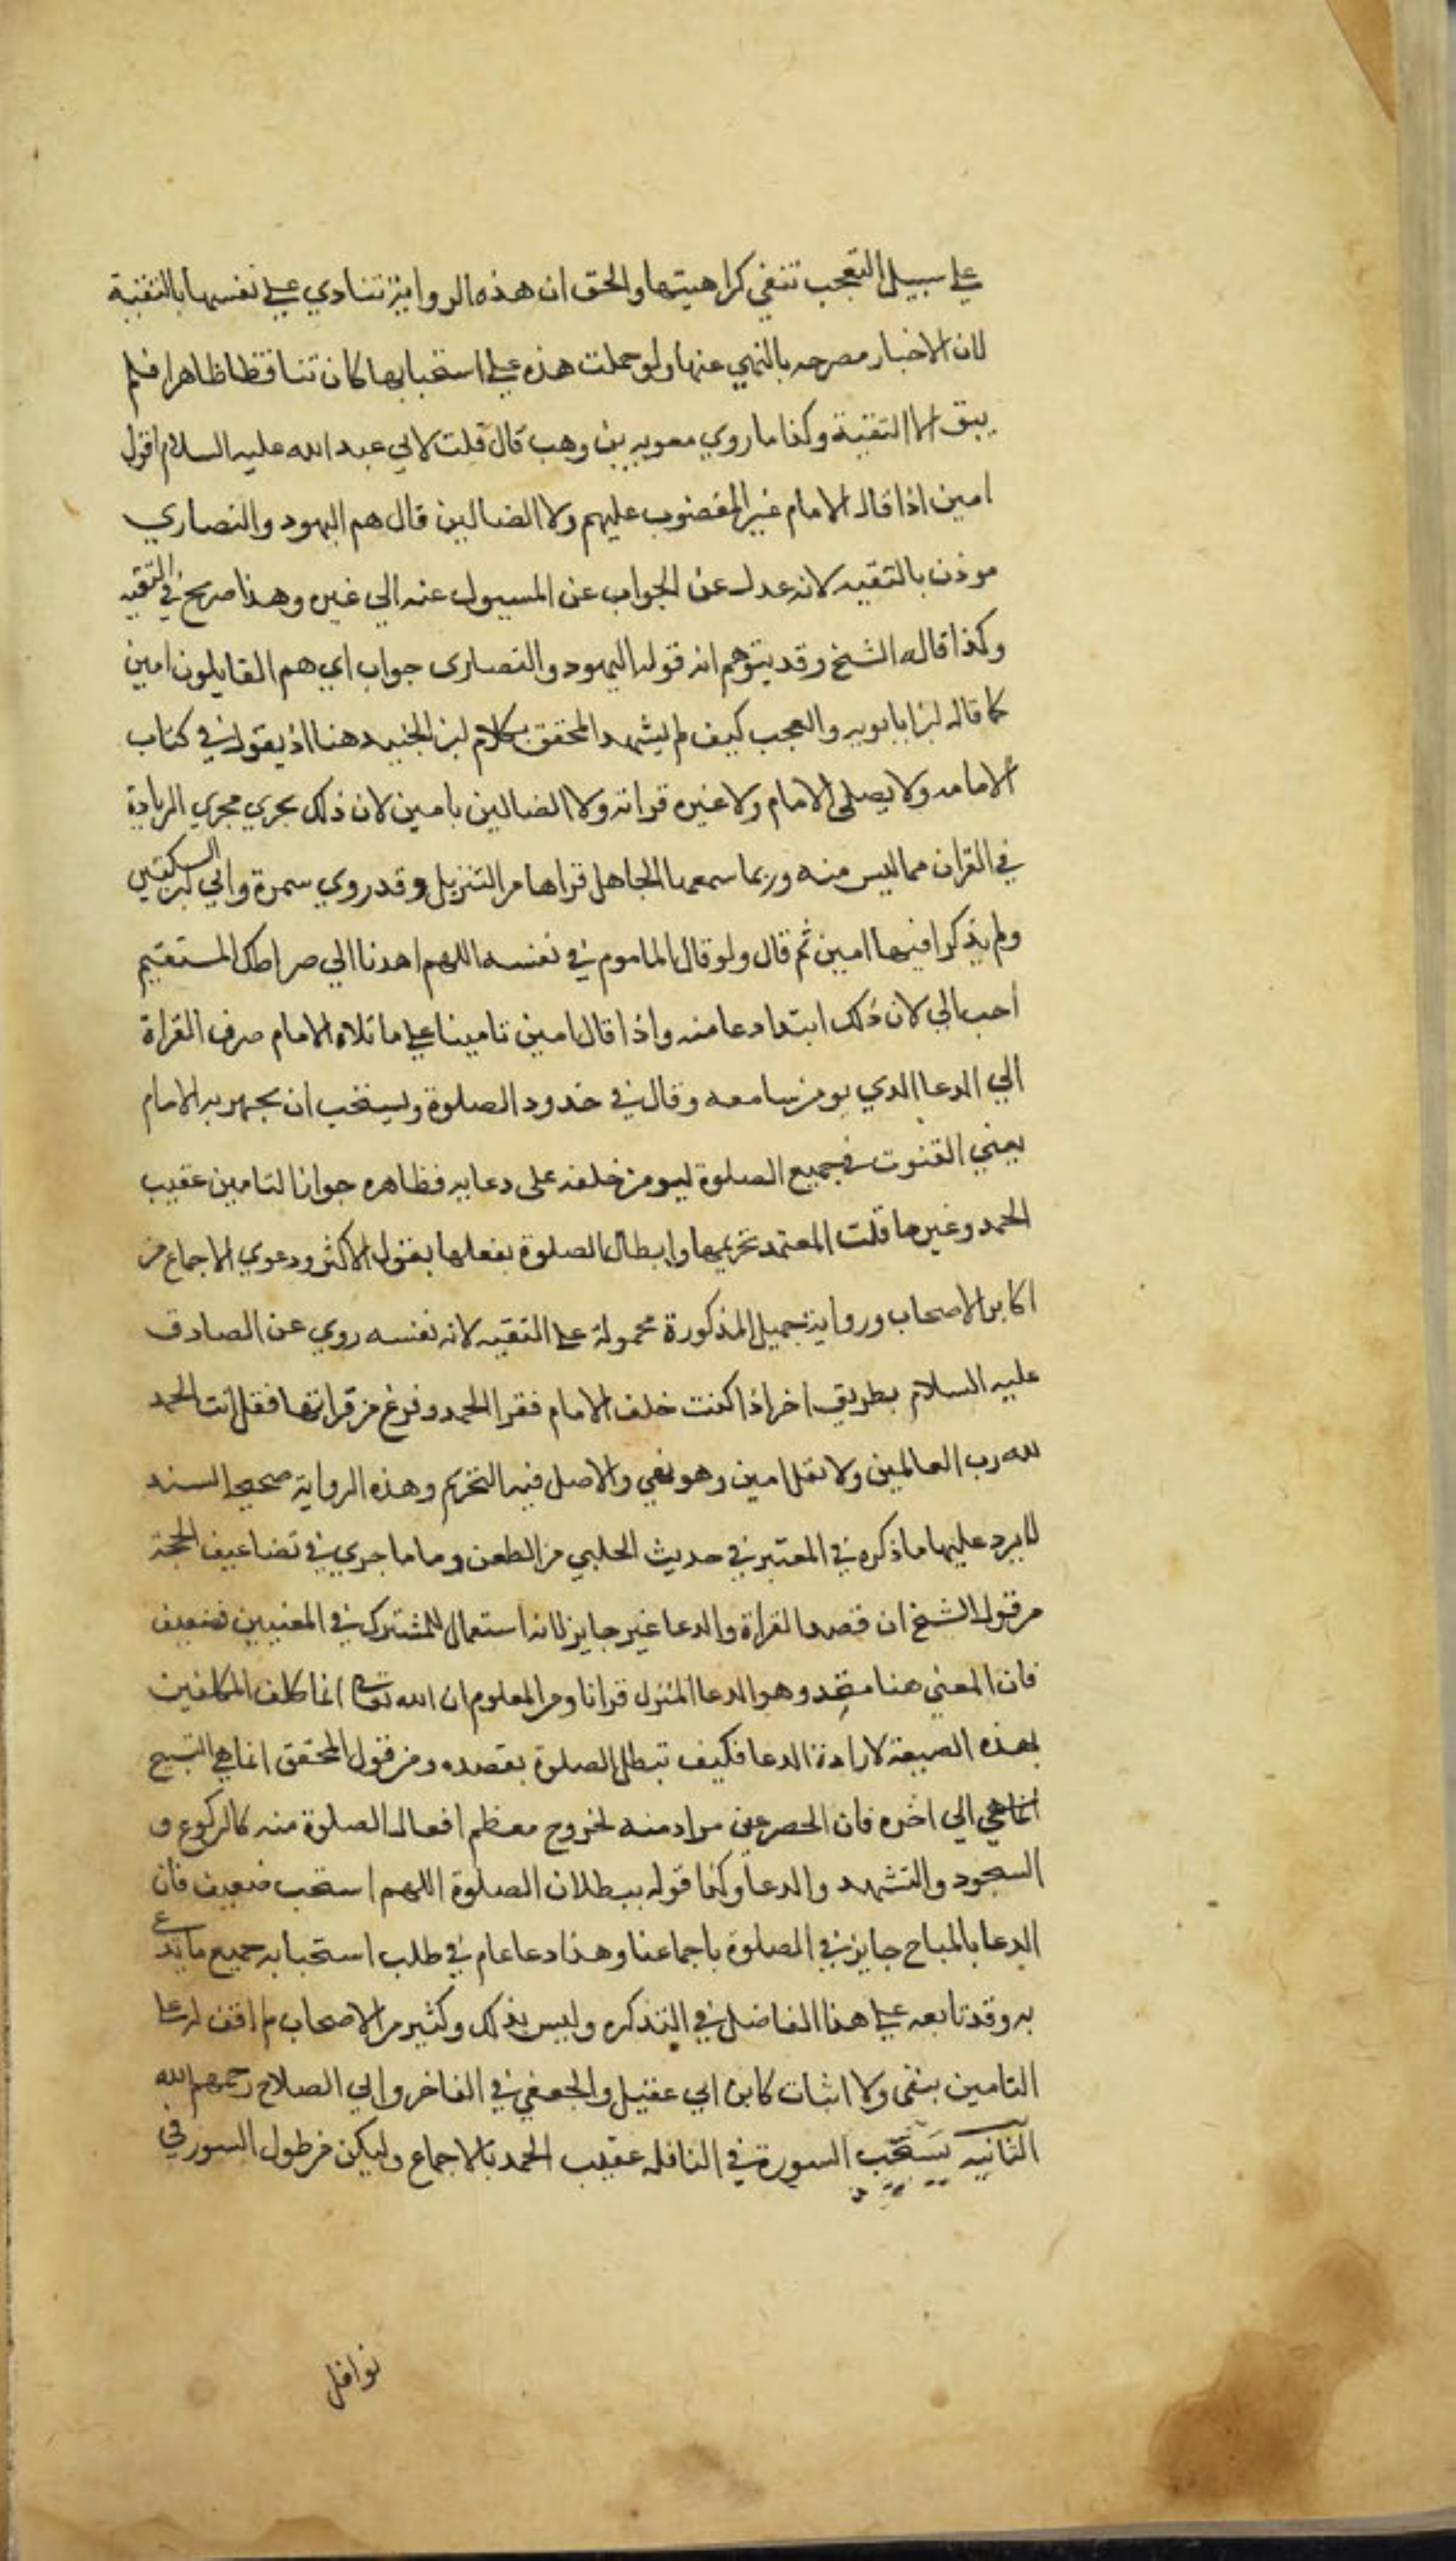 علي سبيل التعجب تنفي كراهيتها والحق ان هذه الرواية تنادي علي نفسها بالتقية
لان الاخبار مصرحه بالنهي عنها ولو حملت هذه علي استحبابها كان تناقضا ظاهرا فلم
يبق الا التقية وكذا ما روي معويه بن وهب قال قلت لابي عبد الله عليه السلام اقول
امين اذا قال الامام غير المغضوب عليهم ولا الضالين قال هم اليهود والنصاري
موذن بالتقيه لانه عدل عن الجواب عن المسيول عنه الي غيره وهذا صريح في التقيه
وكذا قاله الشيخ وقد يتوهم انه قوله اليهود والنصارى جواب اي هم القايلون امين
كما قاله ابن بابويه والعجب كيف لم يشهد المحقق بكلام ابن الجنيد هنا اذ يقول في كتاب
الامامه ولا يصلى الامام ولا غيره قراته ولا الضالين بامين لان ذلك يجري مجري الزيادة
في القران مما ليس منه وربما سمعها الجاهل قراها من التنزيل وقد روي سمرة وابي السكتتين
ولم يذكرا فيها امين ثم قال ولو قال الماموم في نفسه اللهم اهدنا الي صراطك المستقيم
احب الي لان ذلك ابتدا دعا منه واذا قال امين تامينا علي ما تلاه الامام صرف القراة
الي الدعا الذي يومن سامعه وقال في حدود الصلوة ويستحب ان يجهر به الامام
يعني القنوت في جميع الصلوة ليومن خلفه على دعايه فظاهره جواز التامين عقيب
الحمد وغيرها قلت المعتمد تحريمها وابطال الصلوة بفعلها بقول الاكثر ودعوي الاجماع من
اكابر الاصحاب ورواية جميل المذكورة محمولة علي التقيه لانه نفسه روي عن الصادق
عليه السلام بطريق اخر اذا كنت خلف الامام فقرا الحمد وفرغ من قراتها فقل انت الحمد
لله رب العالمين ولا تقل امين وهو نهي والاصل فيه التحريم وهذه الرواية صحيح السند
لا يرد عليها ما ذكره في المعتبر في حديث الحلبي من الطعن وما ما جري في تضاعيف الحجة
من قول الشيخ ان قصد القراة والدعا غير جايز لانه استعمال للمشترك في المعنيين فضعيف
فان المعني هنا متحد وهو الدعا المنزل قرانا ومن المعلوم ان الله تعالى انما كلف المكلفين
بهذه الصيغة لارادة الدعا فكيف تبطل الصلوة بقصده ومن قول المحقق انما هي التسبيح
انما هي الي اخره فان الحصر غير مراد منه لخروج معظم افعال الصلوة منه كالركوع و
السجود والتشهد والدعا وكذا قوله ببطلان الصلوة اللهم استجب ضعيف فان
الدعا بالمباح جايز في الصلوة باجماعنا وهذا دعا عام في طلب استجابه جميع ما يدعي
به وقد تابعه علي هذا الفاضل في التذكره وليس بذلك وكثير من الاصحاب لم اقف له علي
التامين بنفى ولا اثبات كابن ابي عقيل والجعفي في الفاخر وابي الصلاح رحمهم الله
الثانيه يستحب السورة في النافله عقيب الحمد بالاجماع وليكن من طول السور في
نوافل